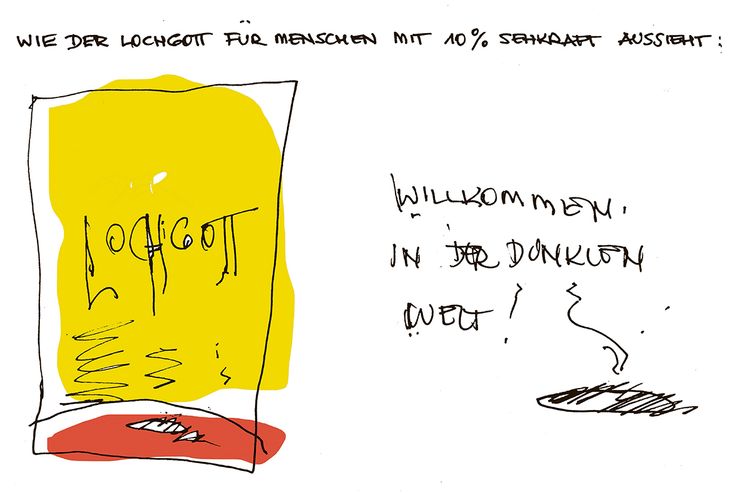 WIE DER LOCHGOTT FÜR MENSCHEN MIT 10% SEHKRAFT AUSSIEHT:
LOCHGOTT
WILLKOMMEN
IN DER DUNKLEN
WELT!